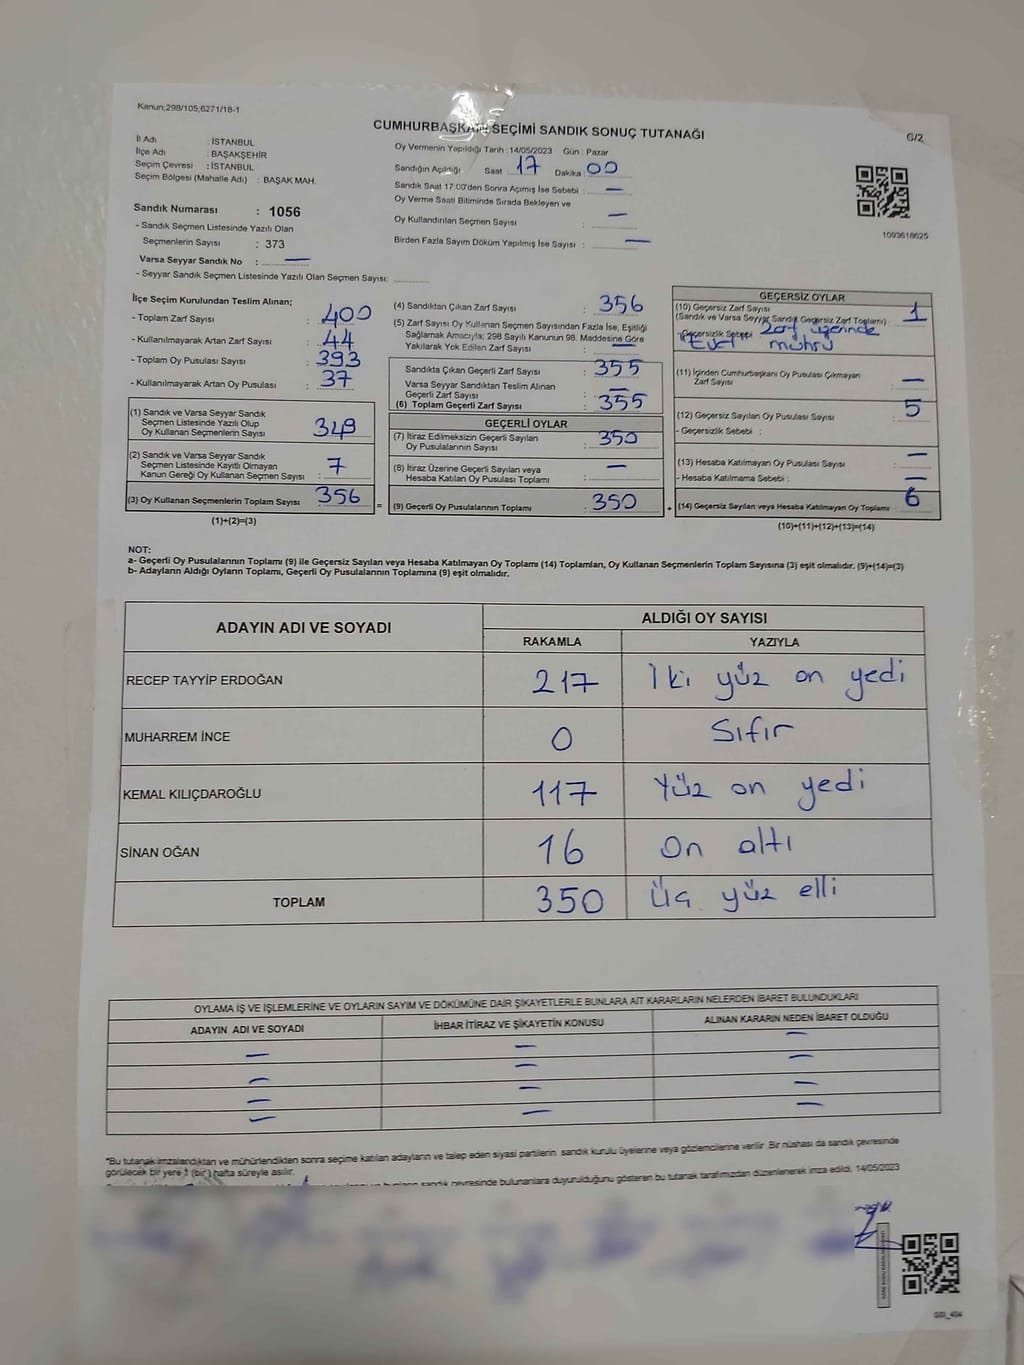 Kanun;298/105;6271/18-1
CUMHURBAŞKANI SEÇİMİ SANDIK SONUÇ TUTANAĞI
C/2
İl Adı : İSTANBUL
İlçe Adı : BAŞAKŞEHİR
Seçim Çevresi : İSTANBUL
Seçim Bölgesi (Mahalle Adı) : BAŞAK MAH.
Sandık Numarası : 1056
- Sandık Seçmen Listesinde Yazılı Olan
Seçmenlerin Sayısı : 373
Varsa Seyyar Sandık No : —
- Seyyar Sandık Seçmen Listesinde Yazılı Olan Seçmen Sayısı:
Oy Vermenin Yapıldığı Tarih : 14/05/2023 Gün : Pazar
Sandığın Açıldığı Saat : 17 Dakika : 00
Sandık Saat 17:00'den Sonra Açımış İse Sebebi : —
Oy Verme Saati Bitiminde Sırada Bekleyen ve
Oy Kullandırılan Seçmen Sayısı : —
Birden Fazla Sayım Döküm Yapılmış İse Sayısı : —
1093618625
İlçe Seçim Kurulundan Teslim Alınan;
- Toplam Zarf Sayısı : 400
- Kullanılmayarak Artan Zarf Sayısı : 44
- Toplam Oy Pusulası Sayısı : 393
- Kullanılmayarak Artan Oy Pusulası : 37
(1) Sandık ve Varsa Seyyar Sandık
Seçmen Listesinde Yazılı Olup
Oy Kullanan Seçmenlerin Sayısı : 349
(2) Sandık ve Varsa Seyyar Sandık
Seçmen Listesinde Kayıtlı Olmayan
Kanun Gereği Oy Kullanan Seçmen Sayısı : 7
(3) Oy Kullanan Seçmenlerin Toplam Sayısı : 356
(1)+(2)=(3)
(4) Sandıktan Çıkan Zarf Sayısı : 356
(5) Zarf Sayısı Oy Kullanan Seçmen Sayısından Fazla İse, Eşitliği
Sağlamak Amacıyla; 298 Sayılı Kanunun 98. Maddesine Göre
Yakılarak Yok Edilen Zarf Sayısı : —
Sandıkta Çıkan Geçerli Zarf Sayısı : 355
Varsa Seyyar Sandıktan Teslim Alınan
Geçerli Zarf Sayısı : —
(6) Toplam Geçerli Zarf Sayısı : 355
GEÇERLİ OYLAR
(7) İtiraz Edilmeksizin Geçerli Sayılan
Oy Pusulalarının Sayısı : 350
(8) İtiraz Üzerine Geçerli Sayılan veya
Hesaba Katılan Oy Pusulası Toplamı : —
= (9) Geçerli Oy Pusulalarının Toplamı : 350 +
GEÇERSİZ OYLAR
(10) Geçersiz Zarf Sayısı
(Sandık ve Varsa Seyyar Sandık Geçersiz Zarf Toplamı) : 1
-Geçersizlik Sebebi Zarf üzerinde
Evet mührü
(11) İçinden Cumhurbaşkanı Oy Pusulası Çıkmayan
Zarf Sayısı : —
(12) Geçersiz Sayılan Oy Pusulası Sayısı : 5
- Geçersizlik Sebebi :
(13) Hesaba Katılmayan Oy Pusulası Sayısı : —
- Hesaba Katılmama Sebebi : —
(14) Geçersiz Sayılan veya Hesaba Katılmayan Oy Toplamı : 6
(10)+(11)+(12)+(13)=(14)
NOT:
a- Geçerli Oy Pusulalarının Toplamı (9) ile Geçersiz Sayılan veya Hesaba Katılmayan Oy Toplamı (14) Toplamları, Oy Kullanan Seçmenlerin Toplam Sayısına (3) eşit olmalıdır. (9)+(14)=(3)
b- Adayların Aldığı Oyların Toplamı, Geçerli Oy Pusulalarının Toplamına (9) eşit olmalıdır.
ADAYIN ADI VE SOYADI
ALDIĞI OY SAYISI
RAKAMLA YAZIYLA
RECEP TAYYİP ERDOĞAN 217 İki yüz on yedi
MUHARREM İNCE 0 Sıfır
KEMAL KILIÇDAROĞLU 117 Yüz on yedi
SİNAN OĞAN 16 On altı
TOPLAM 350 Üç yüz elli
OYLAMA İŞ VE İŞLEMLERİNE VE OYLARIN SAYIM VE DÖKÜMÜNE DAİR ŞİKAYETLERLE BUNLARA AİT KARARLARIN NELERDEN İBARET BULUNDUKLARI
ADAYIN ADI VE SOYADI İHBAR İTİRAZ VE ŞİKAYETİN KONUSU ALINAN KARARIN NEDEN İBARET OLDUĞU
— — —
— — —
— — —
— — —
*Bu tutanak imzalandıktan ve mühürlendikten sonra seçime katılan adayların ve talep eden siyasi partilerin sandık kurulu üyelerine veya gözlemcilerine verilir. Bir nüshası da sandık çevresinde
görülecek bir yere 1 (bir) hafta süreyle asılır.
sandık çevresinde bulunanlara duyurulduğunu gösteren bu tutanak tarafımızdan düzenlenerek imza edildi. 14/05/2023